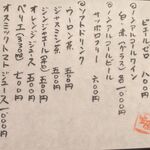 ピチルゼロ 八〇〇円
@ノンアルコールワイン
白・赤(グラス)各一〇〇〇円
@ノンアルコールビール
サッポロフリー 六〇〇円
@ソフトドリンク
ウーロン茶 五〇〇円
ジャスミン茶 五〇〇円
ジンジャエール(辛) 五五〇円
オレンジジュース 五五〇円
ペリエ(330ml) 七〇〇円
オスミックトマトジュース 一〇〇〇円